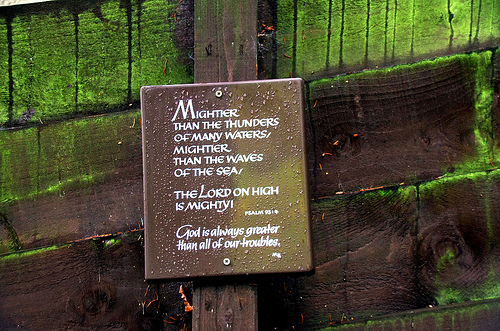 MIGHTIER
THAN THE THUNDERS
OF MANY WATERS,
MIGHTIER
THAN THE WAVES
OF THE SEA,
THE LORD ON HIGH
IS MIGHTY!
PSALM 93:4
God is always greater
than all of our troubles.